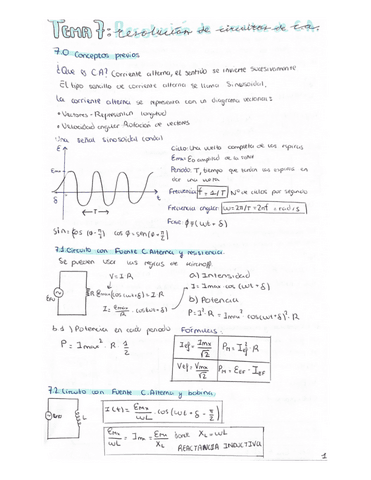 Tema 7: Resolución de circuitos de c.a.
7.0 Conceptos previos
¿Que es CA? Corriente alterna, el sentido se invierte sucesivamente
El tipo sencillo de corriente alterna se llama Sinusoidal,
La corriente alterna se representa con un diagrama vectorial:
• Vectores - Representan longitud
• Velocidad angular - Rotación de vectores
Una señal sinusoidal
Ciclo: Una vuelta completa de las espiras
Emax: Eo amplitud de la
Periodo: T, tiempo que tardan las espiras en
dar una vuelta.
Frecuencia: f = 1/T Nº de ciclos por segundo
Frecuencia angular: ω = 2π/T = 2πf = rad/s
Fase φ = (ωt + δ)
Emax
δ
t
← T →
sin = cos (φ - π/2) cos φ = sen (φ + π/2)
7.1. Circuito con Fuente C. Alterna y resistencia.
Se pueden usar las reglas de Kirchoff.
V = I R
R Emax (cos (ωt + δ)) = I R
I = Emax/R · cos (ωt + δ)
a) Intensidad
I = Imax · cos (ωt + δ)
b) Potencia
P = I² · R = Imax² · cos(ωt + δ)² · R
b.1) Potencia en cada periodo
P = Imax² · R · 1/2
Fórmulas:
Ief = Imax/√2
Pm = Ief² · R
Vef = Vmax/√2
Pm = Eef · Ief
7.2. Circuito con Fuente C. Alterna y bobina.
L
I(t) = Emax/ωL · cos (ωt + δ - π/2)
Emax/ωL = Imax = Emax/XL donde XL = ωL
REACTANCIA INDUCTIVA
1